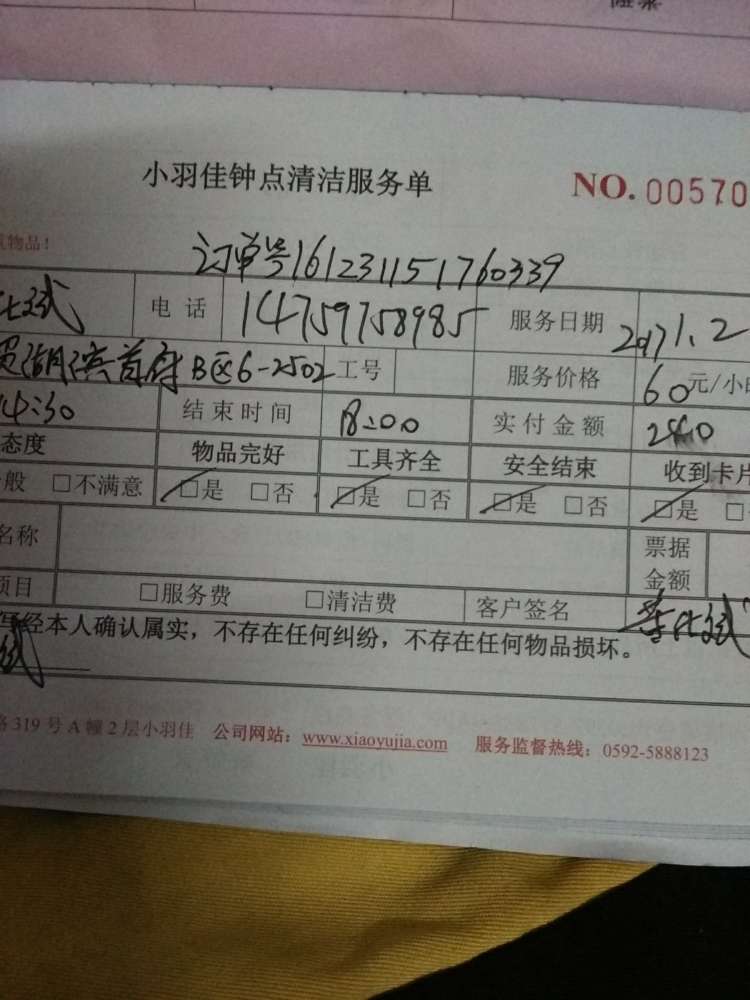 小羽佳钟点清洁服务单 NO. 00570
物品!
订单号161231151760339
电话 14759758985 服务日期 2017.1.2
湖滨首府B区6-2502 工号 服务价格 60元/小时
14:30 结束时间 18:00 实付金额
态度 物品完好 工具齐全 安全结束 收到卡片
般 □不满意 □是 □否 □是 □否 □是 □否 □是 □
名称 票据金额
项目 □服务费 □清洁费 客户签名
经本人确认属实，不存在任何纠纷，不存在任何物品损坏。
路319号A幢2层小羽佳 公司网站：www.xiaoyujia.com 服务监督热线：0592-5888123